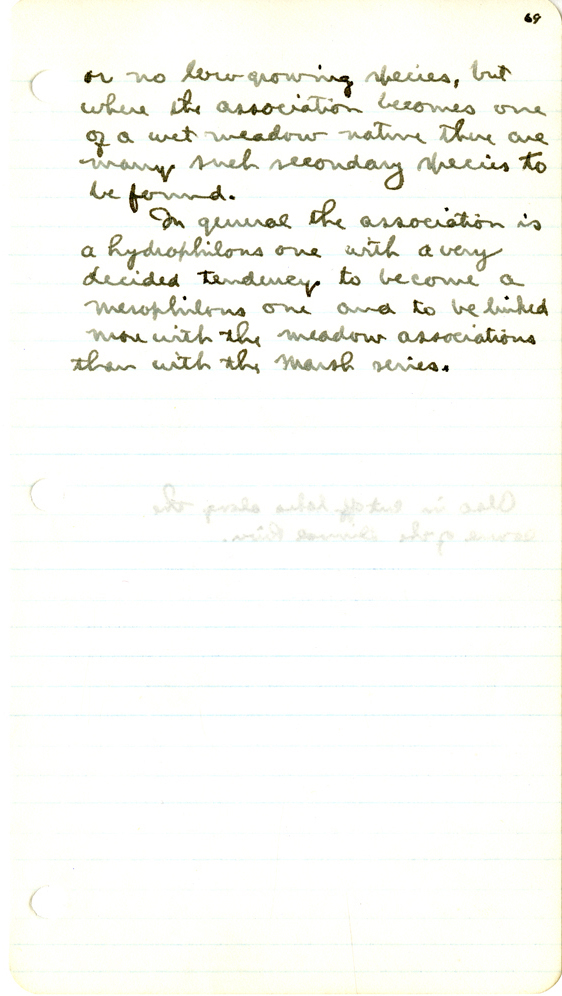 69
or no low-growing species, but
where the association becomes one
of a wet meadow nature there are
many such secondary species to
be found.
In general the association is
a hydrophilous one with a very
decided tendency to become a
mesophilous one and to be linked
more with the meadow associations
than with the Marsh series.
Also in cut off lakes along the
course of the River.